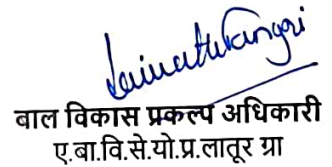 बाल विकास प्रकल्प अधिकारी
ए.बा.वि.से.यो.प्र.लातूर ग्रा